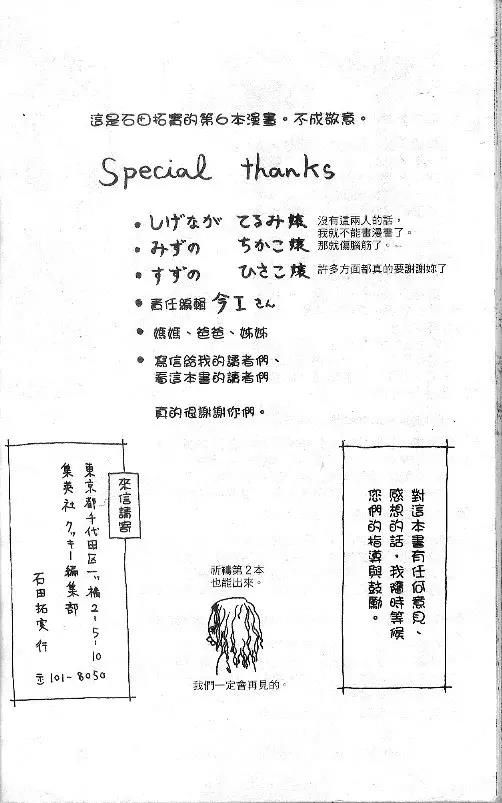 這是石田拓實的第6本漫畫。不成敬意。
Special thanks
• しげなが てるみ様 沒有這兩人的話，
我就不能畫漫畫了。
• みずの ちかこ様 那就傷腦筋了。
• すずの ひさこ様 許多方面都真的要謝謝妳了
• 責任編輯 今工さん
• 媽媽、爸爸、姊姊
• 寫信給我的讀者們、
看這本書的讀者們
真的很謝謝你們。
對這本書有任何意見、
感想的話，我隨時等候
您們的指導與鼓勵。
祈禱第2本
也能出來。
我們一定會再見的。
來信請寄
東京都千代田区一ツ橋2-5-10
集英社 クッキー編集部
石田拓実 行
〒101-8050